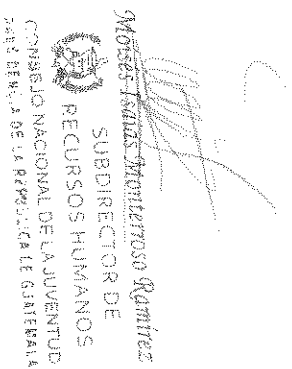 Moises Isaias Monterroso Ramirez
SUBDIRECTOR DE
RECURSOS HUMANOS
CONSEJO NACIONAL DE LA JUVENTUD
PRESIDENCIA DE LA REPUBLICA DE GUATEMALA